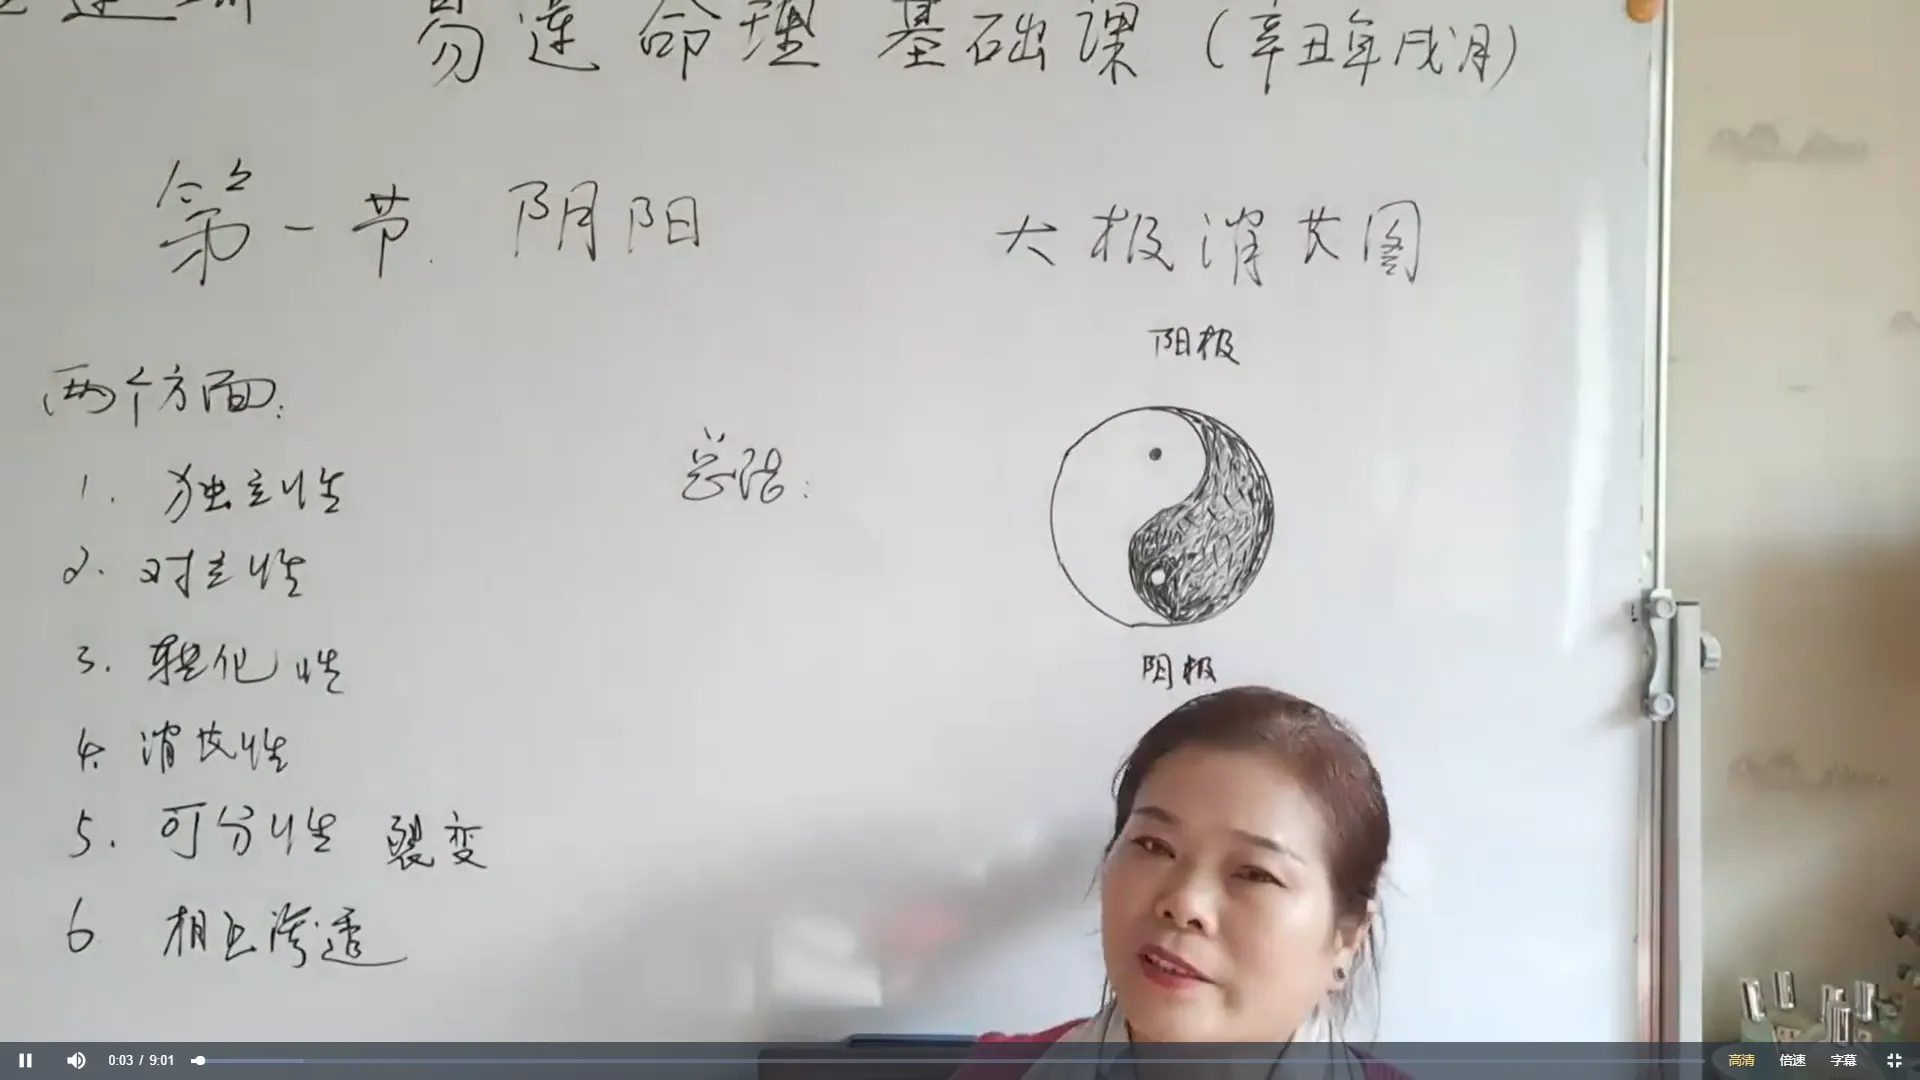 易莲命理基础课(辛丑年戌月)
第一节.阴阳
太极消长图
阳极
两个方面:
总结:
1.独立性
2.对立性
3.转化性
4.消长性
5.可分性 裂变
6 相互渗透
阴极
0:03 / 9:01
高清 倍速 字幕